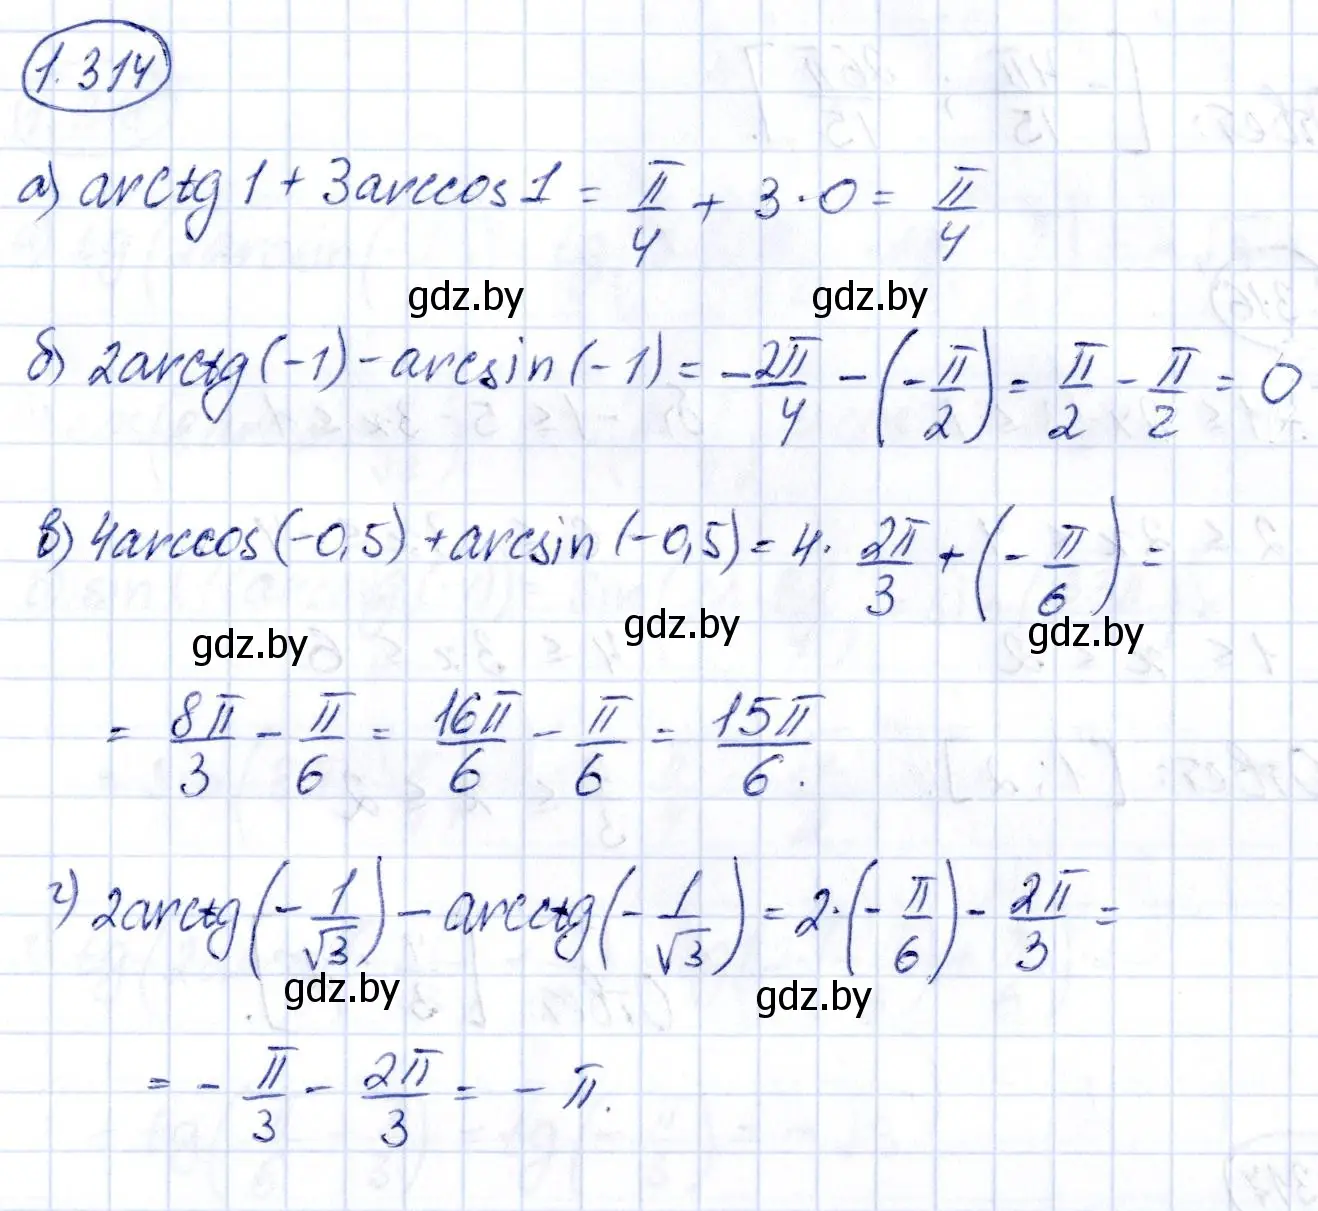 1.314
а) arctg 1 + 3 arccos 1 = π/4 + 3 · 0 = π/4
gdz.by gdz.by
б) 2arctg (-1) - arcsin (-1) = -2π/4 - (-π/2) = π/2 - π/2 = 0
в) 4arccos (-0,5) + arcsin (-0,5) = 4 · 2π/3 + (-π/6) =
gdz.by gdz.by gdz.by
= 8π/3 - π/6 = 16π/6 - π/6 = 15π/6.
г) 2arctg (-1/√3) - arcctg (-1/√3) = 2 · (-π/6) - 2π/3 =
gdz.by gdz.by
= - π/3 - 2π/3 = - π.